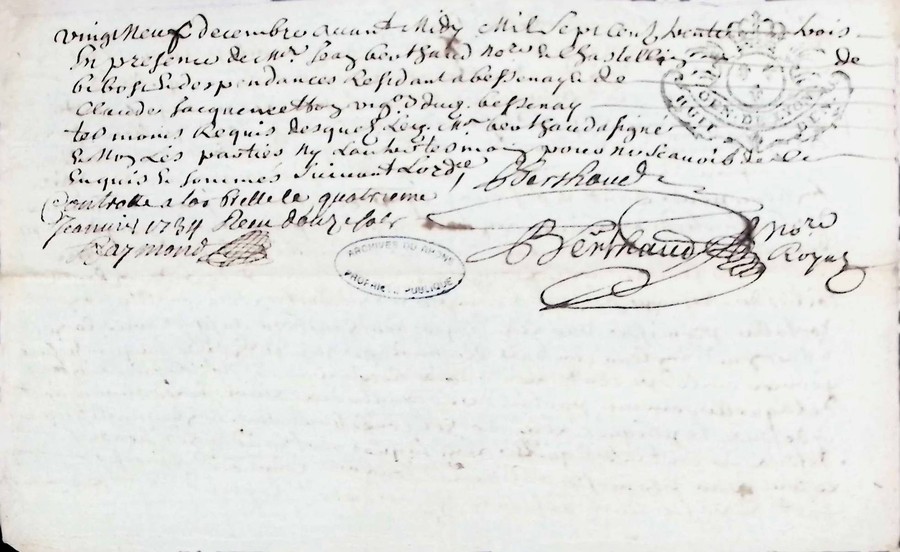 vingt Neuf decembre avant Midy Mil Sept Cent trente trois
En presence de Mre Jean berthaud nore & Chastellain de
bibost & dependances Residant a bessenay & de
Claude Jacquemetton vigo du bessenay
tesmoins Requis desquez Led. Mre berthaud a signé
& Non Les parties Ny Lautre tesmoin pour ne scavoir de Ce
Enquis & sommés suivant Lordce
BBerthaud
Controllé a la bresle le quatrieme
Janvier 1734 Receu douze sols
Raymond
BBerthaud Nore
Royal
GEN. DE LYON
ARCHIVES DU RHONE
PROPRIÉTÉ PUBLIQUE